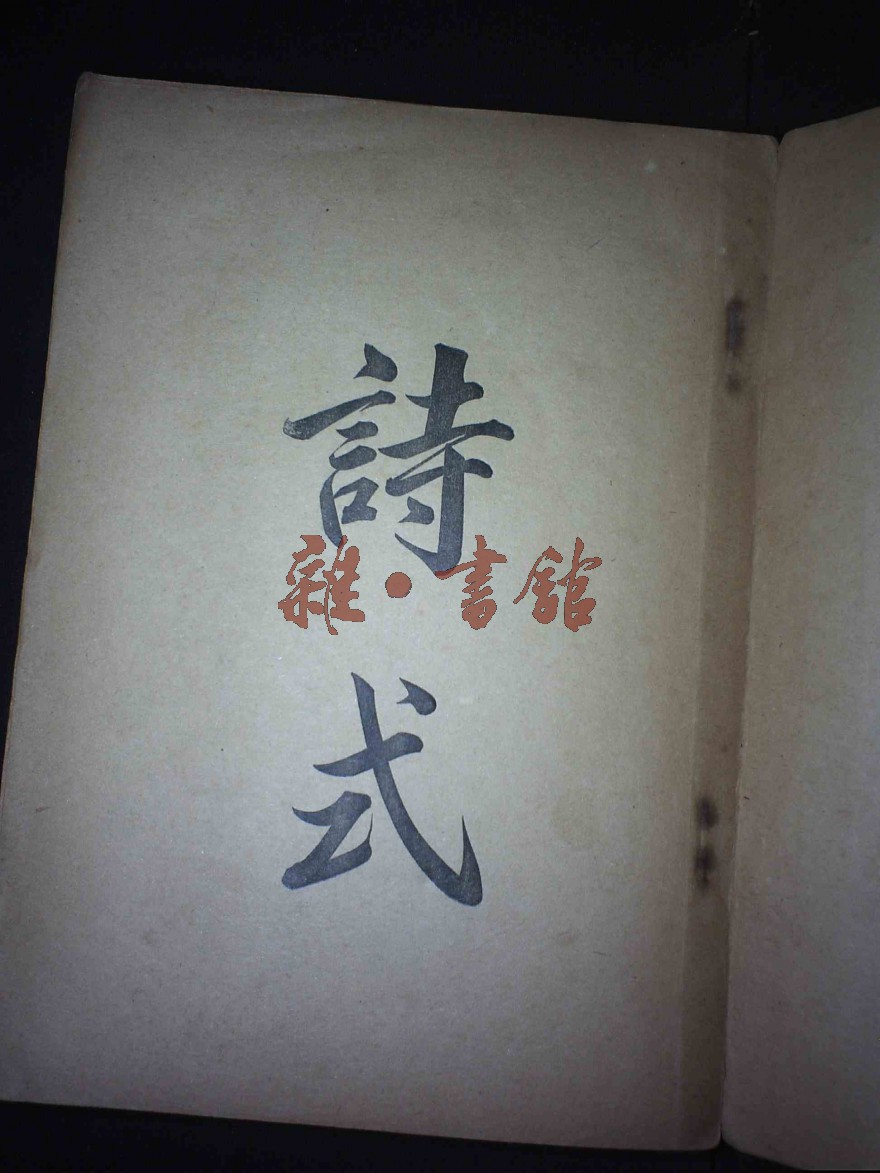 詩式
雜·書館